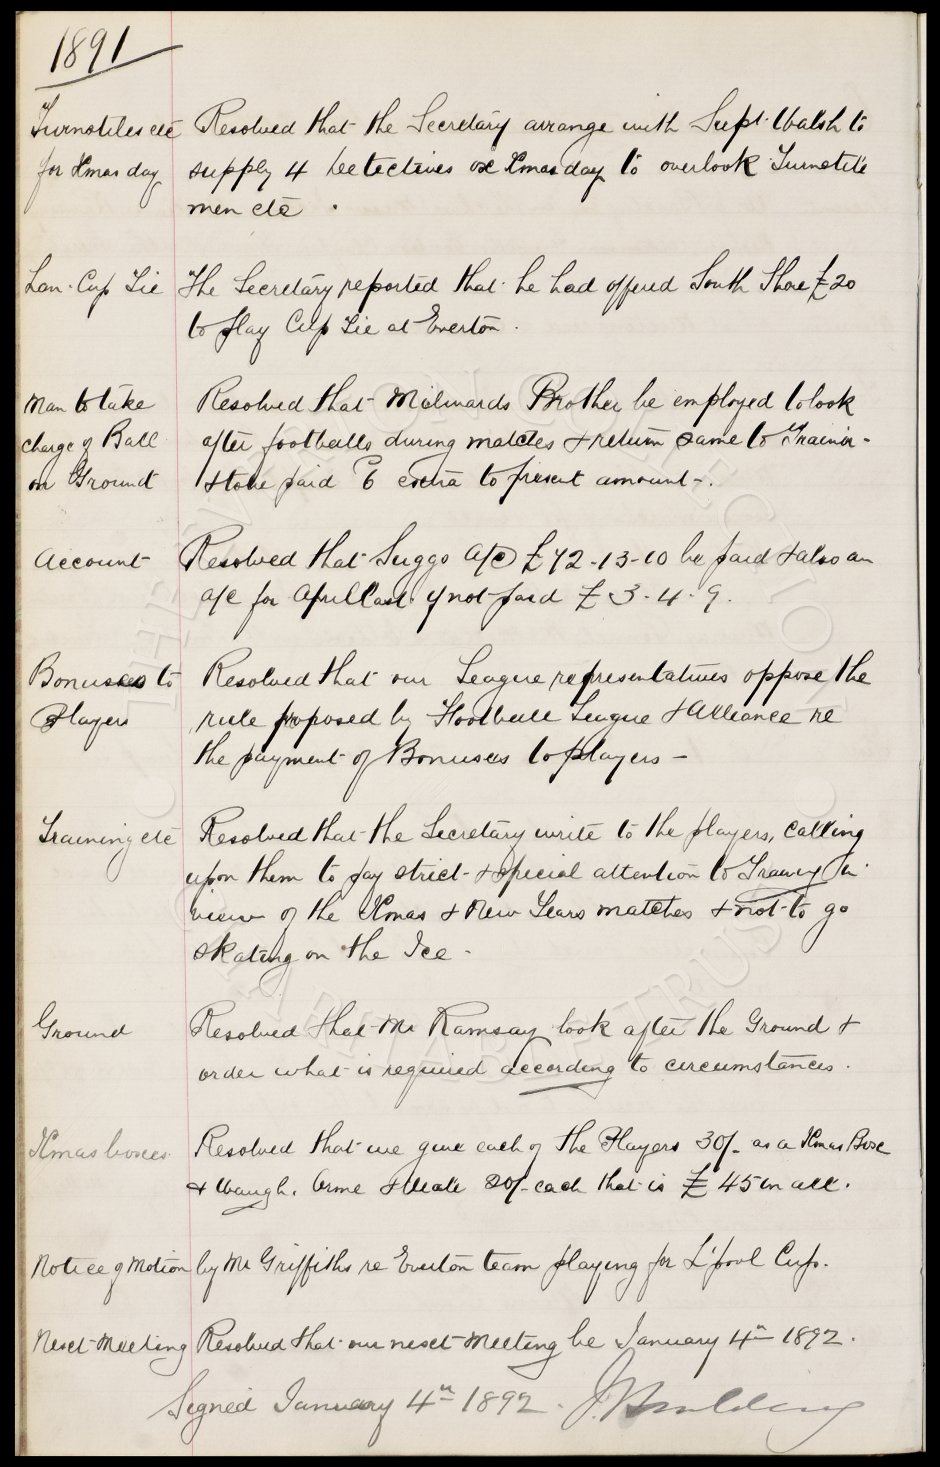 1891
Turnstiles etc Resolved that the Secretary arrange with Supt. Walsh to
for Xmas day supply 4 Detectives on Xmas day to overlook Turnstile
men etc.
Lan. Cup Tie The Secretary reported that he had offered South Shore £20
to play Cup Tie at Everton.
Man to take Resolved that Milwards Brother be employed to look
charge of Ball after footballs during matches & return same to Trainer -
on Ground & to be paid 6 extra to present amount -.
Account Resolved that Suggs a/c £72-13-10 be paid & also an
a/c for April last if not paid £3-4-9.
Bonuses to Resolved that our League representatives oppose the
Players rule proposed by Football League & Alliance re
the payment of Bonuses to players -
Training etc Resolved that the Secretary write to the players, calling
upon them to pay strict & special attention to Training in
view of the Xmas & New Years matches & not to go
skating on the Ice -
Ground Resolved that Mr Ramsay look after the Ground &
order what is required according to circumstances.
Xmas boxes Resolved that we give each of the Players 30/- as a Xmas Box
& Waugh, Orme & 20/- each that is £45 in all.
Notice of Motion by Mr Griffiths re Everton team playing for L'pool Cup.
Next Meeting Resolved that our next meeting be January 4th 1892.
Signed January 4th 1892. J.